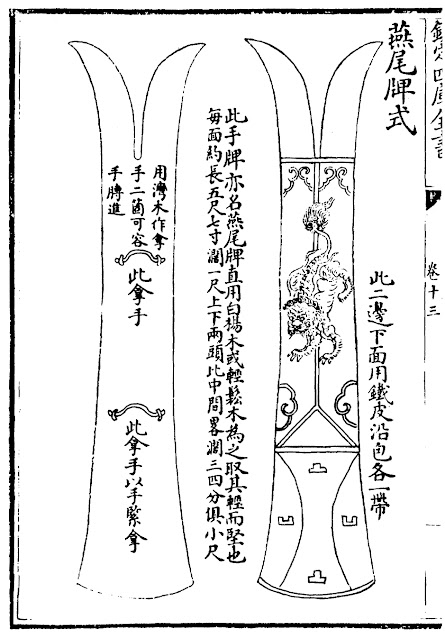 欽定四庫全書
卷十三
燕尾牌式
此二邊下面用鐵皮沿包各一帶
此手牌亦名燕尾牌直用白楊木或輕鬆木為之取其輕而堅也
每面約長五尺七寸濶一尺上下兩頭比中間畧濶三四分俱小尺
用灣木作拿
手二箇可容
手膊進
此拿手
此拿手以手緊拿